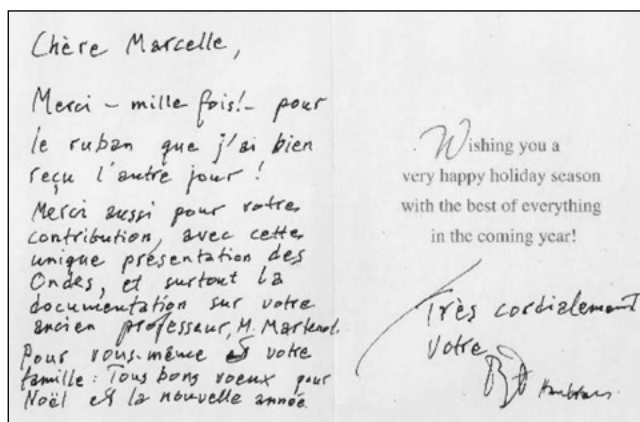 Chère Marcelle,
Merci – mille fois! – pour
le ruban que j'ai bien
reçu l'autre jour !
Merci aussi pour votre
contribution, avec cette
unique présentation des
Ondes, et surtout la
documentation sur votre
ancien professeur, M. Martenot.
Pour vous-même et votre
famille : Tous bons voeux pour
Noël et la nouvelle année.
Wishing you a
very happy holiday season
with the best of everything
in the coming year!
Très cordialement
Votre